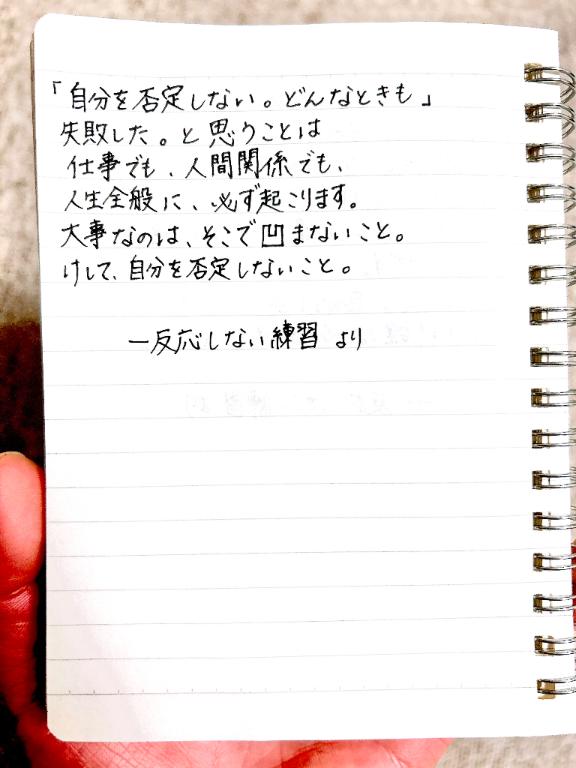 「自分を否定しない。どんなときも」
失敗した。と思うことは
仕事でも、人間関係でも、
人生全般に、必ず起こります。
大事なのは、そこで凹まないこと。
けして、自分を否定しないこと。
ー反応しない練習 より